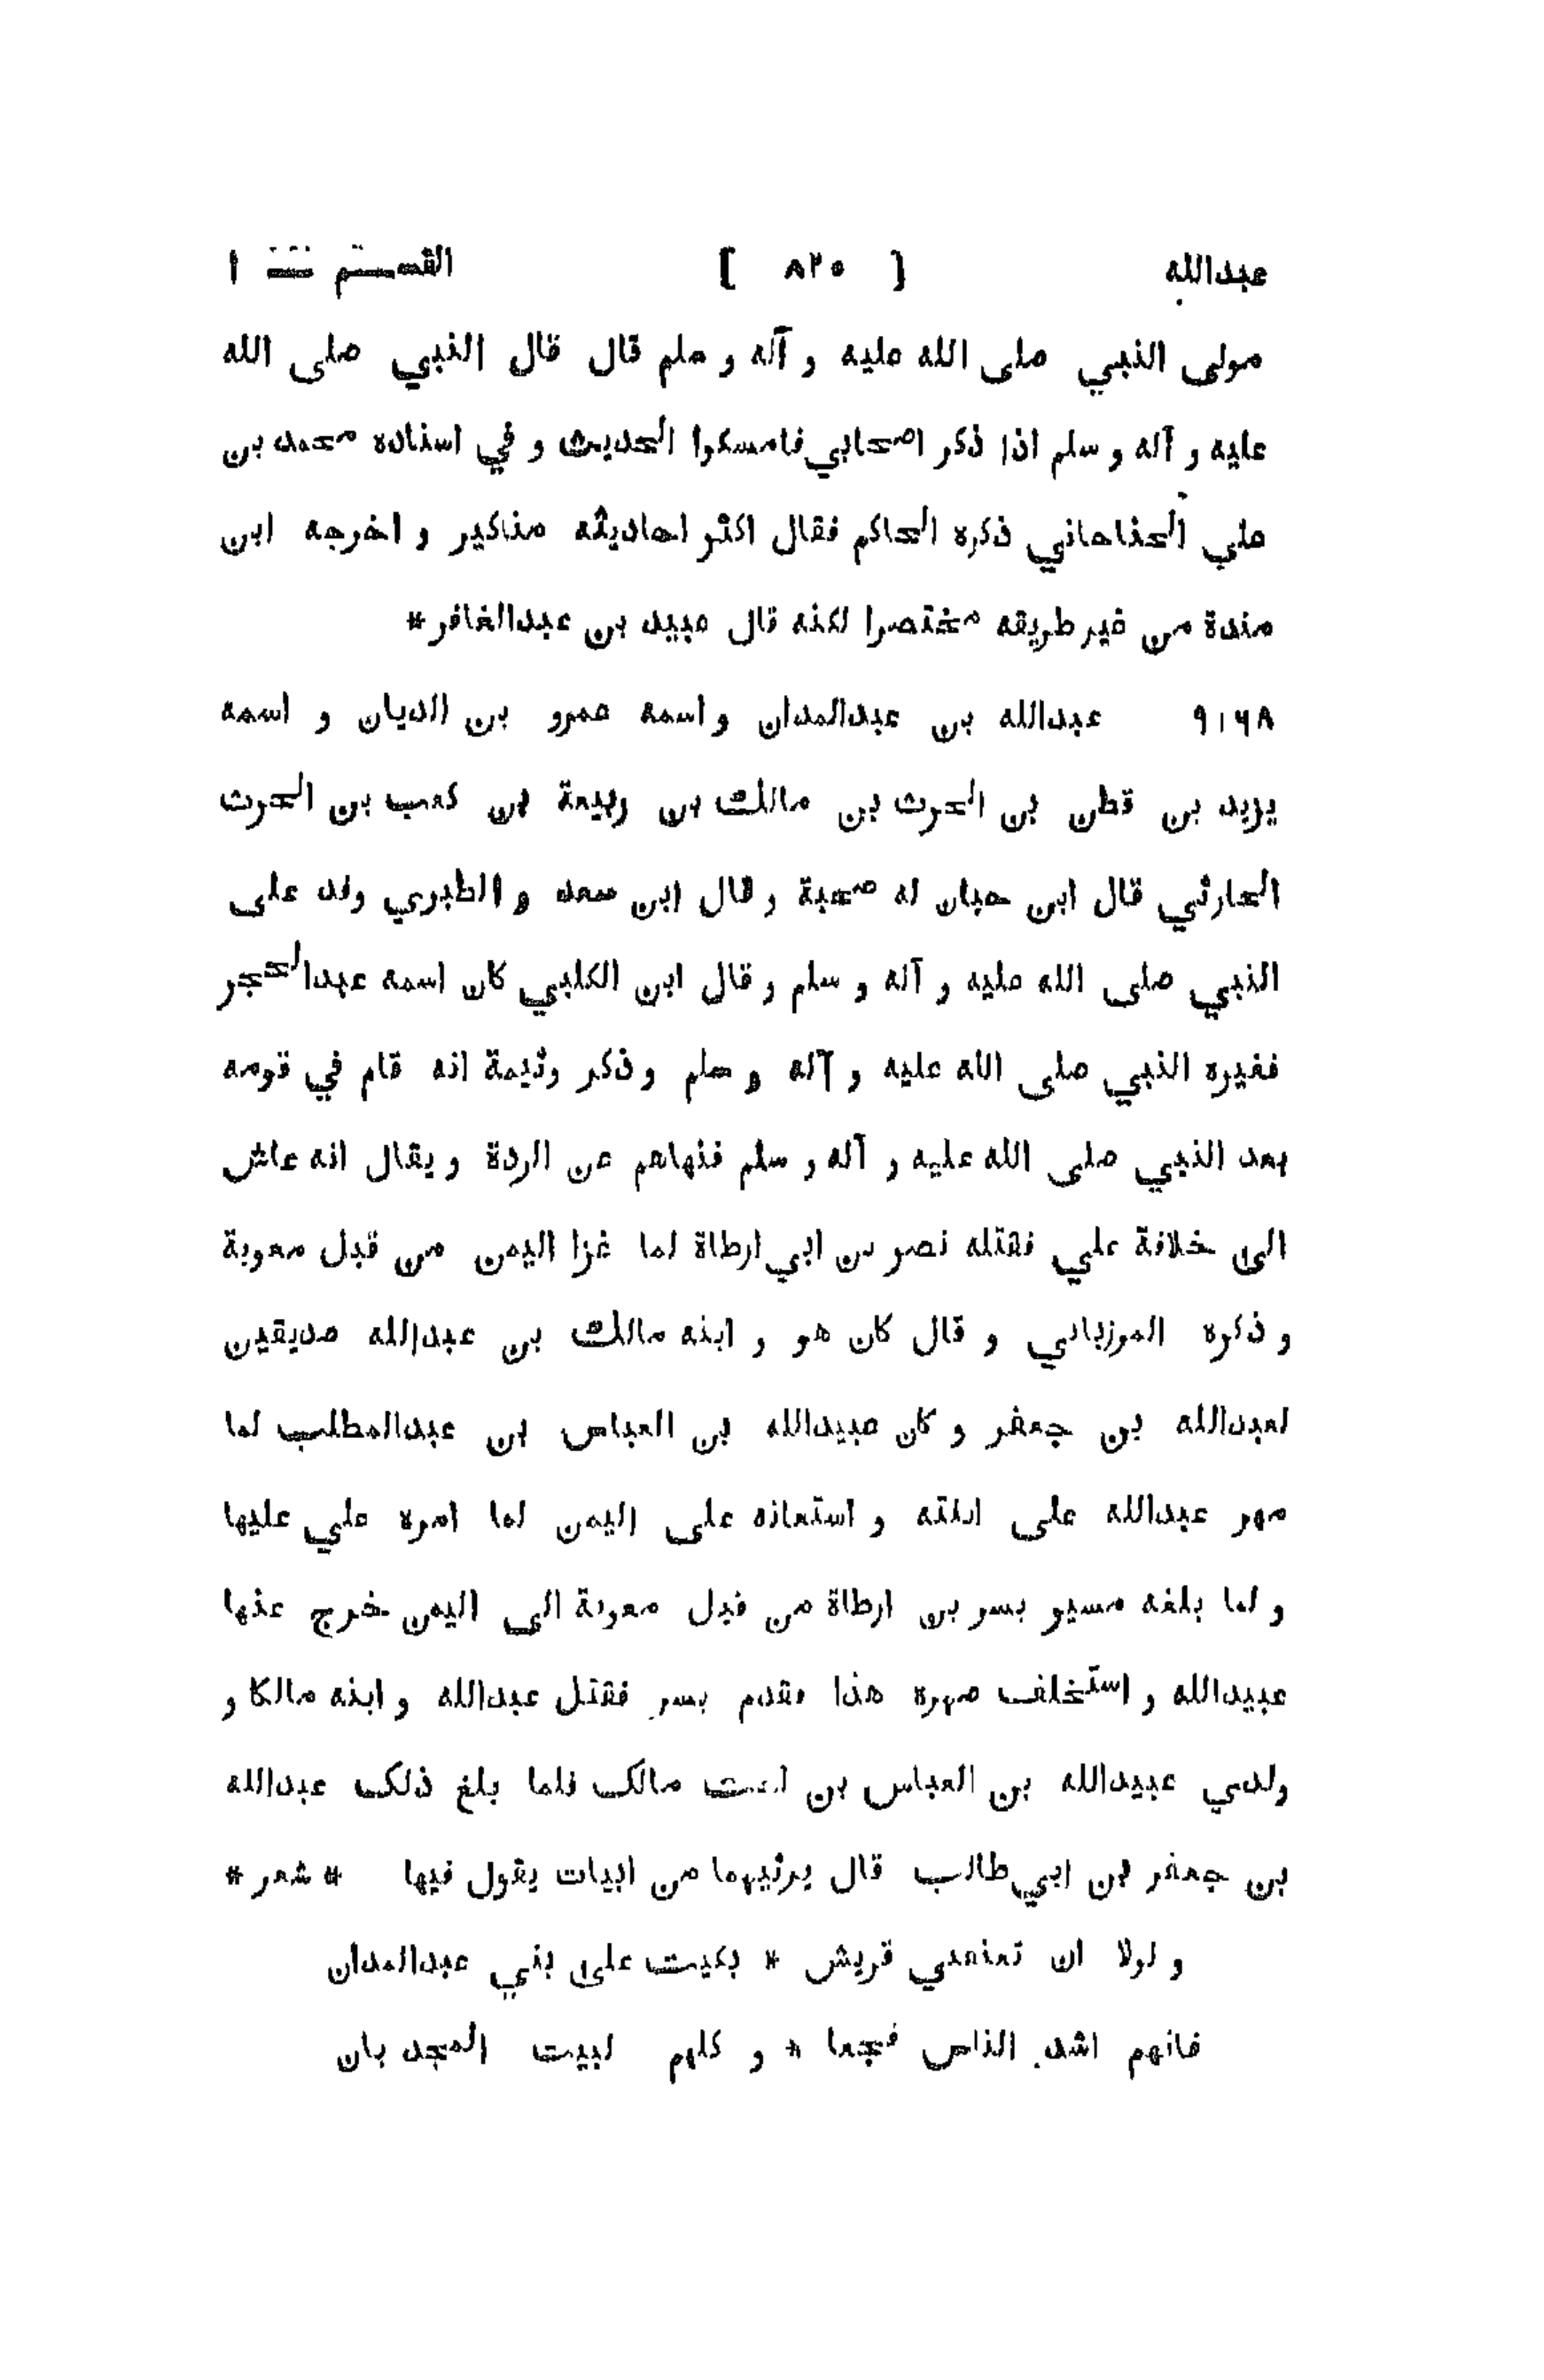 عبدالله [ ٨٢٥ ] القسم ١
مولى النبي صلى الله عليه و آله و سلم قال قال النبي صلى الله
عليه و آله و سلم اذا ذكر اصحابي فامسكوا الحديث و في اسناده محمد بن
علي الحناحاني ذكره الحاكم فقال اكثر احاديثه مناكير و اخرجه ابن
مندة من غير طريقه مختصرا لكنه قال عبيد بن عبدالغافر *
٩١٦٨ عبدالله بن عبدالمدان و اسمه عمرو بن الديان و اسمه
يزيد بن قطن بن الحرث بن مالك بن ربيعة بن كعب بن الحرث
الحارثي قال ابن حبان له صحبة و قال ابن سعد و الطبري وفد على
النبي صلى الله عليه و آله و سلم و قال ابن الكلبي كان اسمه عبدالحجر
فغيره النبي صلى الله عليه و آله و سلم و ذكر وثيمة انه قام في قومه
بعد النبي صلى الله عليه و آله و سلم فنهاهم عن الردة و يقال انه عاش
الى خلافة علي فقتله نصر بن ابي ارطاة لما غزا اليمن من قبل معوية
و ذكره المرزباني و قال كان هو و ابنه مالك بن عبدالله صديقين
لعبدالله بن جعفر و كان عبيدالله بن العباس بن عبدالمطلب لما
صهر عبدالله على ابنته و استعانه على اليمن لما امره علي عليها
و لما بلغه مسير بسر بن ارطاة من قبل معوية الى اليمن خرج عنها
عبيدالله و استخلف صهره هذا فقدم بسر فقتل عبدالله و ابنه مالكا و
ولدي عبيدالله بن العباس بن اخت مالك فلما بلغ ذلك عبدالله
بن جعفر بن ابي طالب قال يرثيهما من ابيات يقول فيها * شعر *
و لولا ان تعنفني قريش * بكيت على بني عبدالمدان
فانهم اشد الناس فجعا * و كلهم لبيت المجد بان